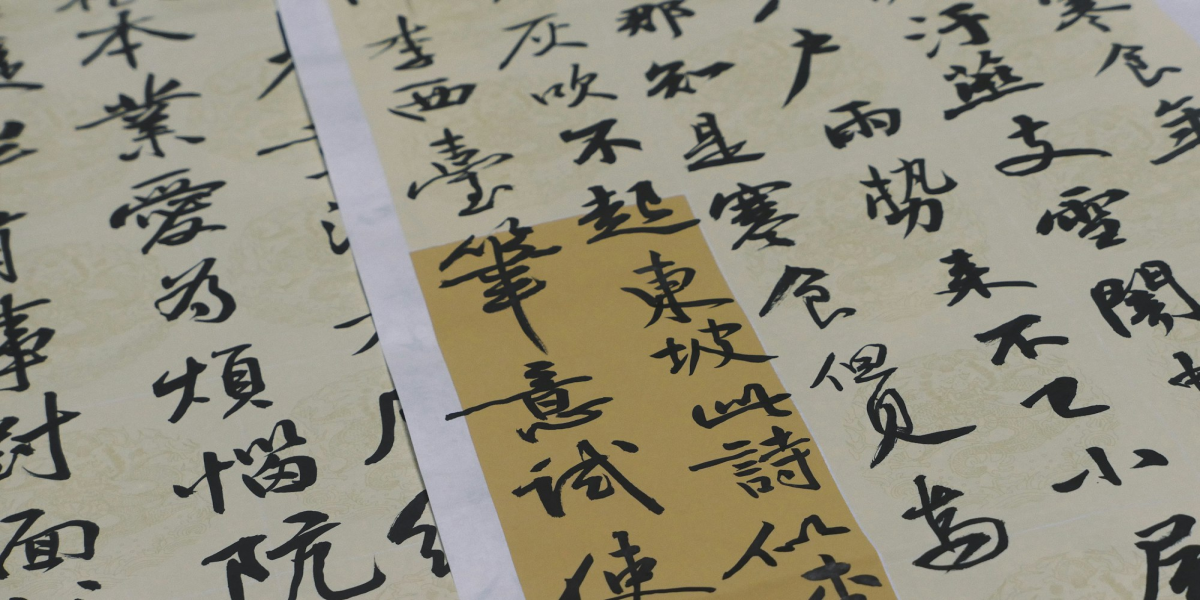 寒食年
汙燕支雪闇中
户雨勢來不已小屋
那知是寒食但見烏
灰吹不起東坡此詩似李
李西臺筆意試使
本業愛為煩惱阮
有事面